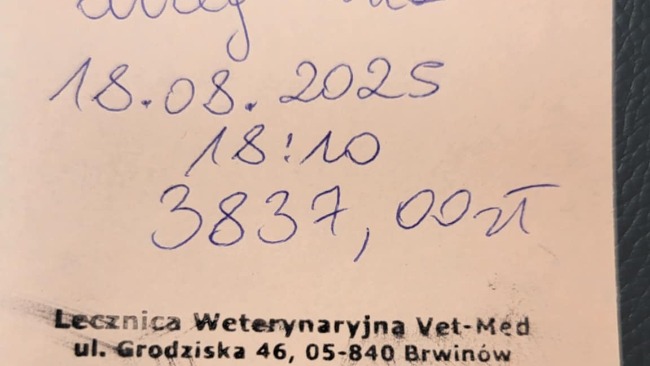 18.08.2025
18:10
3837,00zł
Lecznica Weterynaryjna Vet-Med
ul. Grodziska 46, 05-840 Brwinów